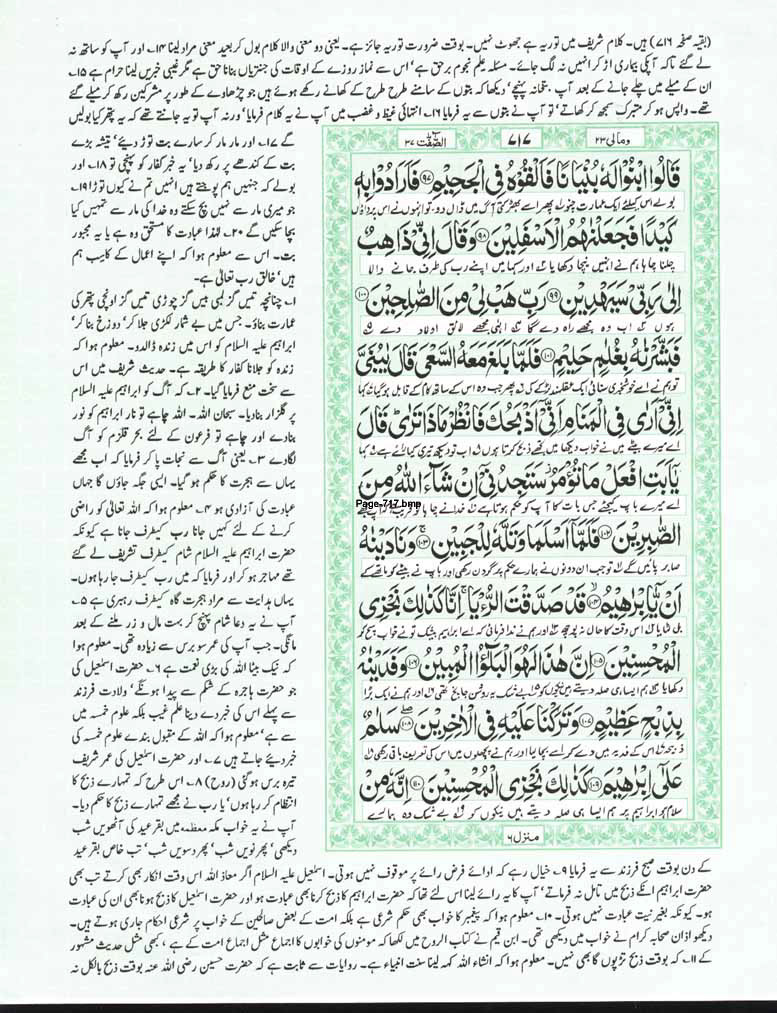 (بقیہ صفحہ ۷۱۶) ہیں۔ کلام شریف میں توریہ ہے جھوٹ نہیں۔ بوقت ضرورت توریہ جائز ہے۔ یعنی دو معنی والا کلام بول کر بعید معنی مراد لینا ۱۴۔ اور آپ کو ساتھ نہ
لے گئے تاکہ آپکی بیماری اڑ کر انہیں نہ لگ جائے۔ مسئلہ علم نجوم برحق ہے' اس سے نماز روزے کے اوقات کی جنتریاں بنانا حق ہے مگر غیبی خبریں لینا حرام ہے ۱۵۔
ان کے میلے میں چلے جانے کے بعد آپ بتخانہ پہنچے' دیکھا کہ بتوں کے سامنے طرح طرح کے کھانے رکھے ہوئے ہیں جو چڑھاوے کے طور پر مشرکین رکھ کر میلے گئے
تھے۔ واپس ہو کر متبرک سمجھ کر کھاتے' تو آپ نے بتوں سے یہ فرمایا ۱۶۔ انتہائی غیظ و غضب میں آپ نے یہ کلام فرمایا' ورنہ آپ تو یہ جانتے تھے کہ یہ پتھر کیا بولیں
گے ۱۷۔ اور مار مار کر سارے بت توڑ دیئے' تیشہ بڑے
بت کے کندھے پر رکھ دیا' یہ خبر کفار کو پہنچی تو ۱۸۔ اور
بولے کہ جنہیں ہم پوجتے ہیں انہیں تم نے کیوں توڑا ۱۹۔
جو میری مار سے نہیں بچ سکتے وہ خدا کی مار سے تمہیں کیا
بچا سکیں گے ۲۰۔ لہٰذا عبادت کا مستحق وہ ہے یا یہ مجبور
بت۔ اس سے معلوم ہوا کہ اپنے اعمال کے کاسب ہم
ہیں' خالق رب تعالٰی ہے۔
۱۔ چنانچہ تیس گز لمبی بیس گز چوڑی تیس گز اونچی پتھر کی
عمارت بناؤ۔ جس میں بے شمار لکڑی جلا کر' دوزخ بنا کر'
ابراہیم علیہ السلام کو اس میں زندہ ڈالدو۔ معلوم ہوا کہ
زندہ کو جلانا کفار کا طریقہ ہے۔ حدیث شریف میں اس
سے سخت منع فرمایا گیا۔ ۲۔ کہ آگ کو ابراہیم علیہ السلام
پر گلزار بنا دیا۔ سبحان اللہ۔ اللہ چاہے تو نار ابراہیم کو نور
بنا دے اور چاہے تو فرعون کے لئے بحر قلزم کو آگ
لگا دے ۳۔ یعنی آگ سے نجات پا کر فرمایا کہ اب مجھے
یہاں سے ہجرت کا حکم ہو گیا۔ ایسی جگہ جاؤں گا جہاں
عبادت کی آزادی ہو ۴۔ معلوم ہوا کہ اللہ تعالٰی کو راضی
کرنے کے لئے کہیں جانا رب کیطرف جانا ہے کیونکہ
حضرت ابراہیم علیہ السلام شام کیطرف تشریف لے گئے
تھے مہاجر ہو کر اور فرمایا کہ میں رب کیطرف جا رہا ہوں۔
یہاں ہدایت سے مراد ہجرت گاہ کیطرف رہبری ہے ۵۔
آپ نے یہ دعا شام پہنچ کر بہت مال و زر ملنے کے بعد
مانگی۔ جب آپ کی عمر سو برس سے زیادہ تھی۔ معلوم ہوا
کہ نیک بیٹا اللہ کی بڑی نعمت ہے ۶۔ حضرت اسمٰعیل کی
جو حضرت ہاجرہ کے شکم سے پیدا ہونگے' ولادت فرزند
سے پہلے اس کی خبر دے دینا علم غیب بلکہ علوم خمسہ میں
سے ہے' معلوم ہوا کہ اللہ کے مقبول بندے علوم خمسہ کی
خبر دیئے جاتے ہیں ۷۔ اور حضرت اسمٰعیل کی عمر شریف
تیرہ برس ہو گئی (روح) ۸۔ اس طرح کہ تمہارے ذبح کا
انتظام کر رہا ہوں' یا رب نے مجھے تمہارے ذبح کا حکم دیا۔
آپ نے یہ خواب مکہ معظمہ میں بقر عید کی آٹھویں شب
دیکھی' پھر نویں شب' پھر دسویں شب' تب خاص بقر عید
ومالی ۲۳
۷۱۷
الصّٰفّٰت ۳۷
قَالُوا ابْنُوْا لَهٗ بُنْيَانًا فَاَلْقُوْهُ فِي الْجَحِيْمِ ۹۷ فَاَرَادُوْا بِهٖ
بولے اس کیلئے ایک عمارت چنو لہ پھر اسے بھڑکتی آگ میں ڈال دو۔ تو انہوں نے اس پر داؤں
كَيْدًا فَجَعَلْنٰهُمُ الْاَسْفَلِيْنَ ۹۸ وَقَالَ اِنِّيْ ذَاهِبٌ
چلنا چاہا ہم نے انہیں نیچا دکھایا اور کہا میں اپنے رب کی طرف جانے والا
اِلٰى رَبِّيْ سَيَهْدِيْنِ ۹۹ رَبِّ هَبْ لِيْ مِنَ الصّٰلِحِيْنَ ۱۰۰
ہوں اب وہ مجھے راہ دے گا الٰہی مجھے لائق اولاد دے
فَبَشَّرْنٰهُ بِغُلٰمٍ حَلِيْمٍ ۱۰۱ فَلَمَّا بَلَغَ مَعَهُ السَّعْيَ قَالَ يٰبُنَيَّ
تو ہم نے اسے خوشخبری سنائی ایک عقلمند لڑکے کی پھر جب وہ اس کے ساتھ کام کے قابل ہو گیا کہا
اِنِّيْ اَرٰى فِي الْمَنَامِ اَنِّيْ اَذْبَحُكَ فَانْظُرْ مَاذَا تَرٰى قَالَ
اے میرے بیٹے میں نے خواب دیکھا میں تجھے ذبح کرتا ہوں اب تو دیکھ تیری کیا رائے ہے کہا
يٰۤاَبَتِ افْعَلْ مَا تُؤْمَرُ سَتَجِدُنِيْۤ اِنْ شَآءَ اللّٰهُ مِنَ
اے میرے باپ کیجئے جس بات کا آپ کو حکم ہوتا ہے خدا نے چاہا تو قریب
Page-717.bmp
الصّٰبِرِيْنَ ۱۰۲ فَلَمَّاۤ اَسْلَمَا وَتَلَّهٗ لِلْجَبِيْنِ ۱۰۳ وَنَادَيْنٰهُ
صابر پائیں گے تو جب ان دونوں نے ہمارے حکم پر گردن رکھی اور باپ نے بیٹے کو ماتھے کے
اَنْ يّٰۤاِبْرٰهِيْمُ ۱۰۴ قَدْ صَدَّقْتَ الرُّءْيَا اِنَّا كَذٰلِكَ نَجْزِي
بل لٹایا اس وقت کا حال نہ پوچھ اور ہم نے ندا فرمائی کہ اے ابراہیم بیشک تو نے خواب سچ کر
الْمُحْسِنِيْنَ ۱۰۵ اِنَّ هٰذَا لَهُوَ الْبَلٰٓؤُا الْمُبِيْنُ ۱۰۶ وَفَدَيْنٰهُ
دکھایا ہم ایسا ہی صلہ دیتے ہیں نیکوں کو بے شک یہ روشن جانچ تھی اور ہم نے ایک بڑا
بِذِبْحٍ عَظِيْمٍ ۱۰۷ وَتَرَكْنَا عَلَيْهِ فِي الْاٰخِرِيْنَ ۱۰۸ سَلٰمٌ
ذبیحہ اس کے فدیہ میں دے کر اسے بچا لیا اور ہم نے پچھلوں میں اس کی تعریف باقی رکھی
عَلٰۤى اِبْرٰهِيْمَ ۱۰۹ كَذٰلِكَ نَجْزِي الْمُحْسِنِيْنَ ۱۱۰ اِنَّهٗ مِنْ
سلام ہو ابراہیم پر ہم ایسا ہی صلہ دیتے ہیں نیکوں کو بے شک وہ ہمارے
منزل ۶
کے دن بوقت صبح فرزند سے یہ فرمایا ۹۔ خیال رہے کہ ادائے فرض رائے پر موقوف نہیں ہوتی۔ اسمٰعیل علیہ السلام اگر معاذ اللہ اس وقت انکار بھی کرتے تب بھی
حضرت ابراہیم انکے ذبح میں تامل نہ فرماتے' آپ کا یہ رائے لینا اس لئے تھا کہ حضرت ابراہیم کا ذبح کرنا بھی عبادت ہو اور حضرت اسمٰعیل کا ذبح ہونا بھی ان کی عبادت
ہو۔ کیونکہ بغیر نیت عبادت نہیں ہوتی۔ ۱۰۔ معلوم ہوا کہ پیغمبر کا خواب بھی حکم شرعی ہے بلکہ امت کے بعض صالحین کے خواب پر شرعی احکام جاری ہوتے ہیں۔
دیکھو اذان صحابہ کرام نے خواب میں دیکھی تھی۔ ابن قیم نے کتاب الروح میں لکھا کہ مومنوں کی خوابوں کا اجماع مثل اجماع امت کے ہے' کبھی مثل حدیث مشہور
کے ۱۱۔ کہ بوقت ذبح تڑپوں گا بھی نہیں۔ معلوم ہوا کہ انشاء اللہ کہہ لینا سنت انبیاء ہے۔ روایات سے ثابت ہے کہ حضرت حسین رضی اللہ عنہ بوقت ذبح بالکل نہ